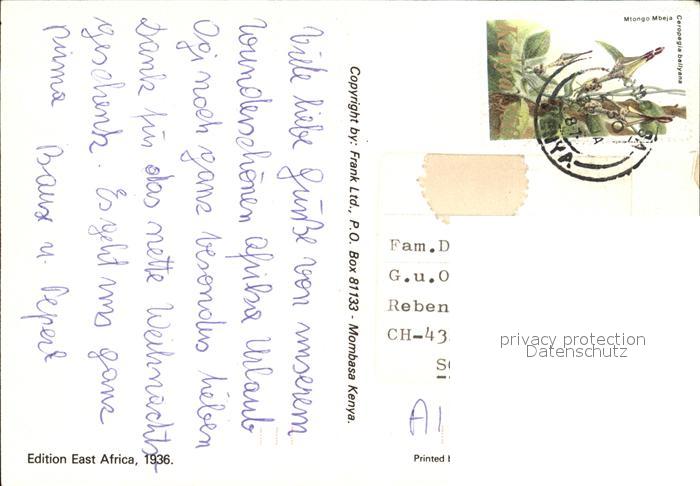 Viele liebe Grüße von unserem
wunderschönen Afrika Urlaub
Ogi noch ganz besonders lieben
Dank für das nette Weihnachts-
geschenk. Es geht uns ganz
prima
Copyright by: Frank Ltd., P.O. Box 81133 - Mombasa Kenya.
Edition East Africa, 1936.
Mtongo Mbeja
Ceropegia ballyana
KENYA
Fam.D
G.u.O
Reben
CH-43
privacy protection
Datenschutz
Al
Printed b